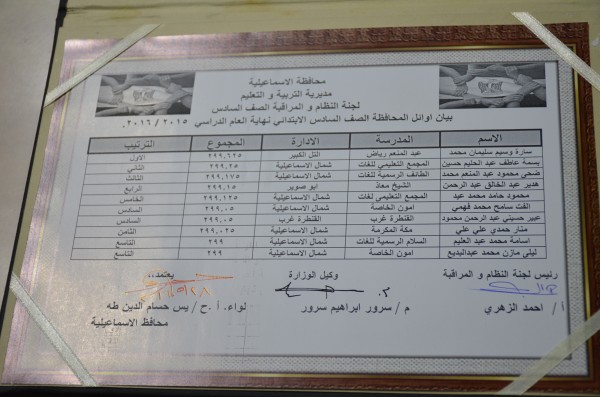 محافظة الاسماعيلية
مديرية التربية و التعليم
لجنة النظام و المراقبة الصف السادس
بيان اوائل المحافظة الصف السادس الابتدائي نهاية العام الدراسي ٢٠١٥ / ٢٠١٦م.
الاسم المدرسة الادارة المجموع الترتيب
سارة وسيم سليمان محمد عبد المنعم رياض التل الكبير ٢٩٩,٦٢٥ الاول
بسمة عاطف عبد الحليم حسين المجمع التعليمي للغات شمال الاسماعيلية ٢٩٩,٢٥ الثاني
ضحي محمود عبد المنعم محمد الطائف الرسمية للغات شمال الاسماعيلية ٢٩٩,١٧٥ الثالث
هدير عبد الخالق عبد الرحمن الشيخ معاذ ابو صوير ٢٩٩,١٥ الرابع
محمود حامد محمد عيد المجمع التعليمي للغات شمال الاسماعيلية ٢٩٩,١٢٥ الخامس
الفت سامح محمد فهمي امون الخاصة شمال الاسماعيلية ٢٩٩,٠٥ السادس
عبير حسيني عبد الرحمن محمود القنطرة غرب القنطرة غرب ٢٩٩,٠٥ السادس
منار حمدي علي علي مكة المكرمة شمال الاسماعيلية ٢٩٩,٠٢٥ الثامن
اسامة محمد عبد العليم السلام الرسمية للغات شمال الاسماعيلية ٢٩٩ التاسع
ليلي مازن محمد عبدالبديع امون الخاصة شمال الاسماعيلية ٢٩٩ التاسع
رئيس لجنة النظام و المراقبة وكيل الوزارة يعتمد،،
أ / احمد الزهري م / سرور ابراهيم سرور لواء. أ .ح / يس حسام الدين طه
محافظ الاسماعيلية